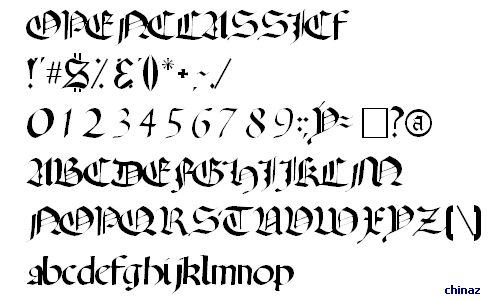 OPENCLASSICF
!"#$%&'()*+,-./
0123456789:;<=>?@
ABCDEFGHIJKLMN
OPQRSTUVWXYZ[\]
abcdefghijklmnop
chinaz